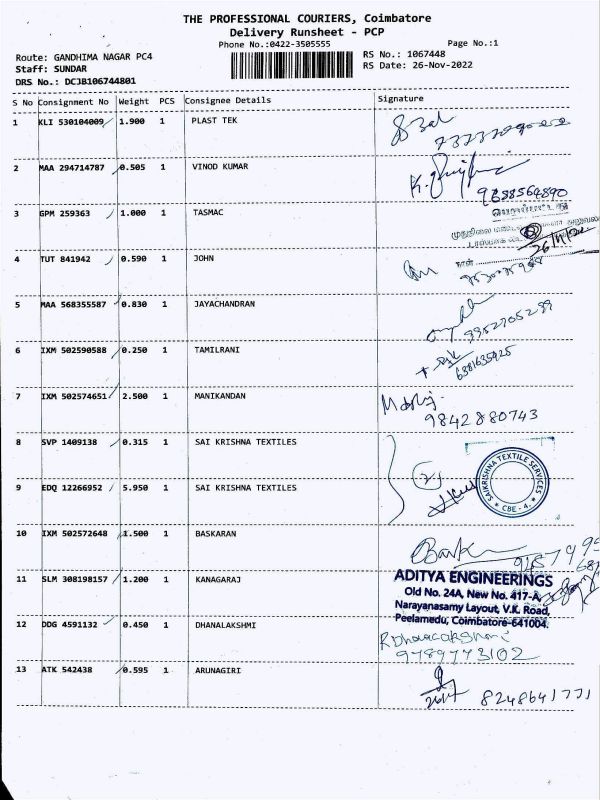 THE PROFESSIONAL COURIERS, Coimbatore
Delivery Runsheet - PCP
Phone No.:0422-3505555 Page No.:1
Route: GANDHIMA NAGAR PC4 RS No.: 1067448
Staff: SUNDAR RS Date: 26-Nov-2022
DRS No.: DCJB106744801
S No Consignment No Weight PCS Consignee Details Signature
1 KLI 530104009 1.900 1 PLAST TEK
2 MAA 294714787 0.505 1 VINOD KUMAR
3 GPM 259363 1.000 1 TASMAC
4 TUT 841942 0.590 1 JOHN
5 MAA 568355587 0.830 1 JAYACHANDRAN
6 IXM 502590588 0.250 1 TAMILRANI
6381635925
7 IXM 502574651 2.500 1 MANIKANDAN
9842880743
8 SVP 1409138 0.315 1 SAI KRISHNA TEXTILES
SAIKRISHNA TEXTILE SERVICES
CBE - 4.
9 EDQ 12266952 5.950 1 SAI KRISHNA TEXTILES
10 IXM 502572648 1.500 1 BASKARAN
11 SLM 308198157 1.200 1 KANAGARAJ
ADITYA ENGINEERINGS
Old No. 24A, New No. 417-A,
Narayanasamy Layout, V.K. Road,
Peelamedu, Coimbatore-641004.
12 DDG 4591132 0.450 1 DHANALAKSHMI
9789773102
13 ATK 542438 0.595 1 ARUNAGIRI
8248641771